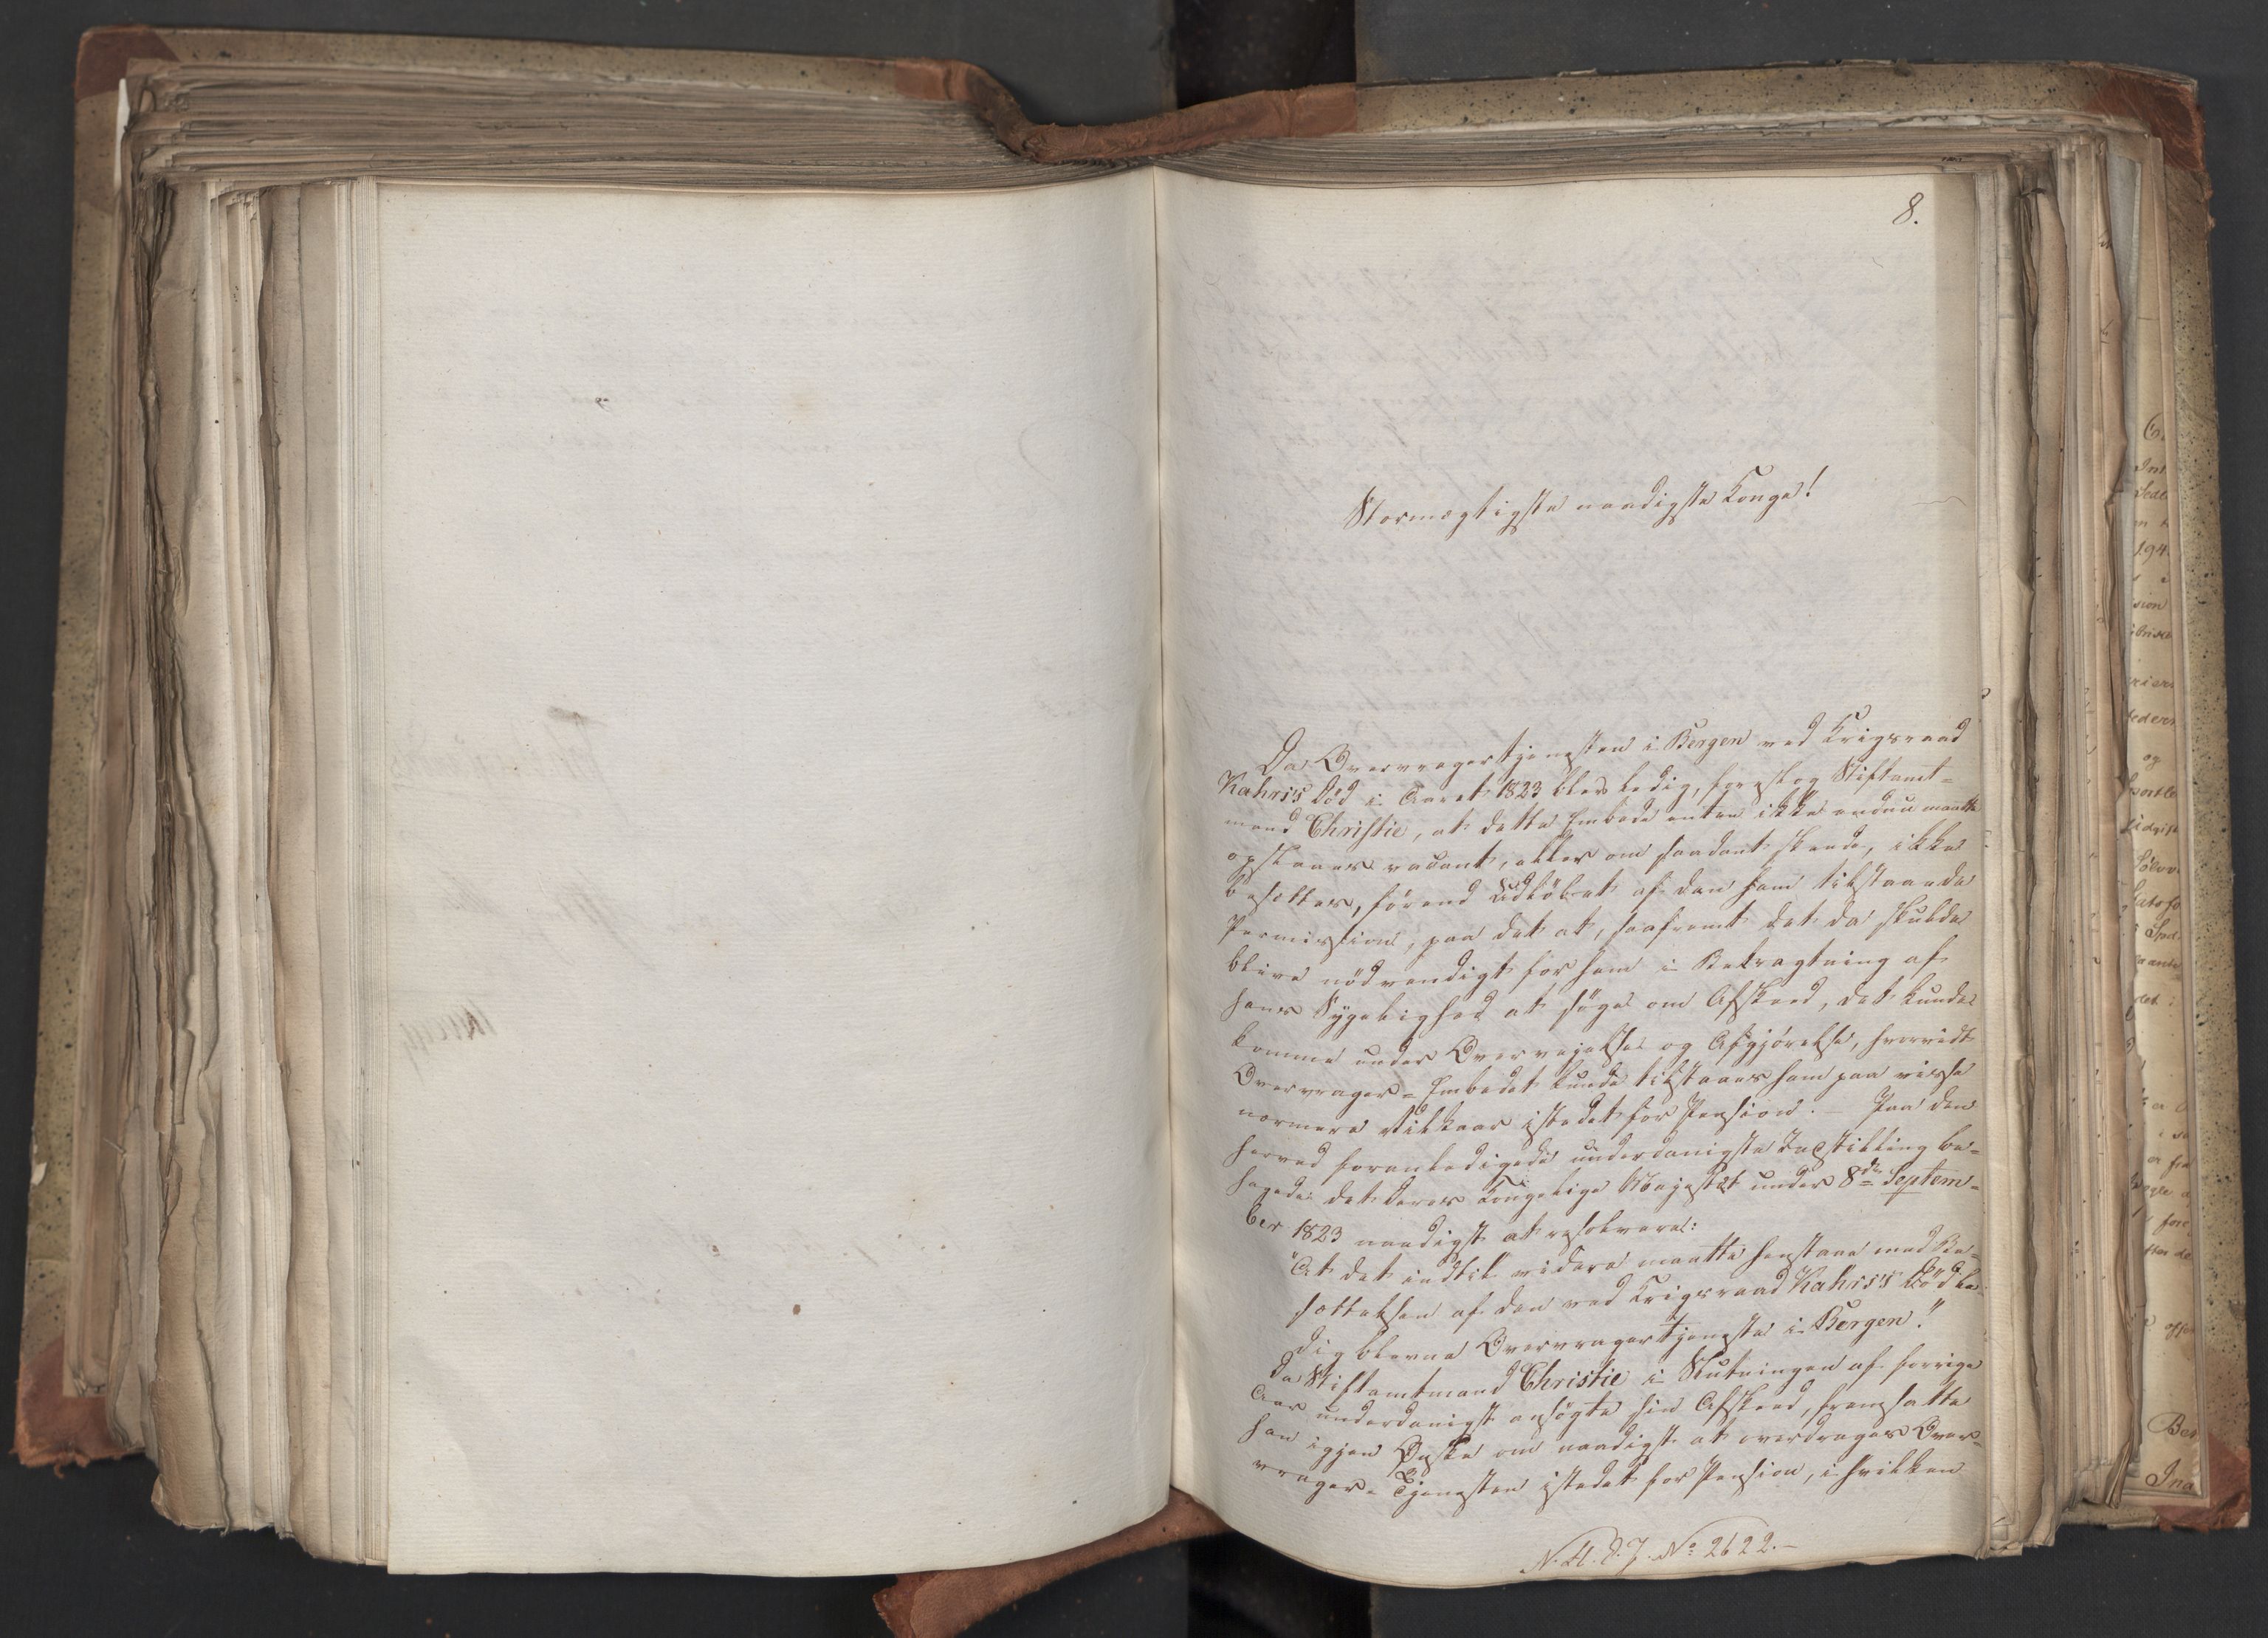 8.
Stormægtigste naadigste Konge!
Da Overvragertjenesten i Bergen ved Krigsraad
Kahrs's Död i Aaret 1823 blev ledig, foreslog Stiftamt=
mand Christie, at dette Embede enten ikke endnu maatte
opslaaes vacant, eller om saadant skeede, ikke
besættes, förend Udlöbet af den ham tilstaaede
Permission, paa det at, saafremt det da skulde
blive nödvendigt for ham i Betragtning af
hans Sygelighed at söge om Afskeed, det kunde
komme under Overveielse og Afgjörelse, hvorvidt
Overvrager=Embedet kunde tilstaaes ham paa visse
nærmere Vilkaar istedet for Pension. – Paa den
herved foranledigede underdanigste Indstilling be=
hagede det Deres Kongelige Majestæt under 8de Septem=
ber 1823 naadigst at resolvere:
"At det indtil videre maatte henstaae med Be=
sættelsen af den ved Krigsraad Kahrs's Död le=
dig blevne Overvragertjeneste i Bergen."
Da Stiftamtmand Christie i Slutningen af forrige
Aar underdanigst ansögte sin Afskeed, fremsatte
han igjen Önske om naadigst at overdrages Over=
vrager=Tjenesten istedet for Pension, i hvilken
N. A. D. J. No 2622. –